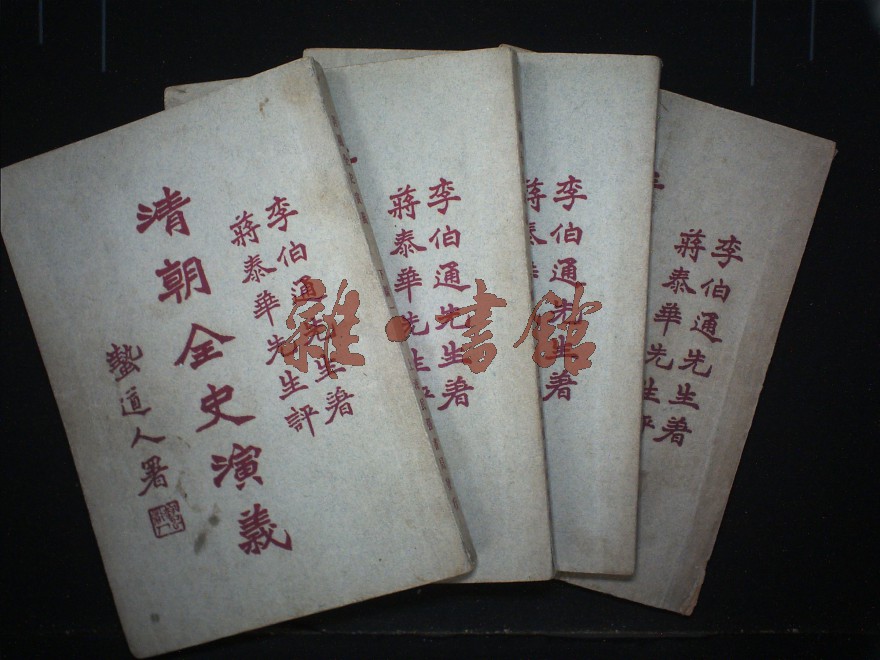 李伯通先生著
蔣泰華先生評
清朝全史演義
蟄道人署
李伯通先生著
蔣泰華先生評
李伯通先生著
蔣泰
李伯通先生著
蔣泰華先生評
雜·書館